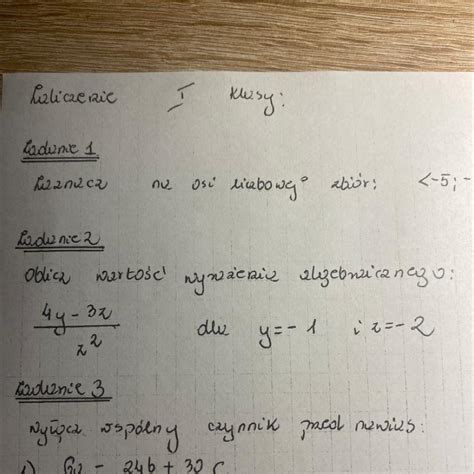 Zaliczenie I klasy:
Zadanie 1
Zaznacz na osi liczbowej zbiór: <-5; -
Zadanie 2
Oblicz wartość wyrażenia algebraicznego:
4y - 3z
z²
dla y = - 1 i z = - 2
Zadanie 3
wyłącz wspólny czynnik przed nawias:
1) 6a - 24b + 30c